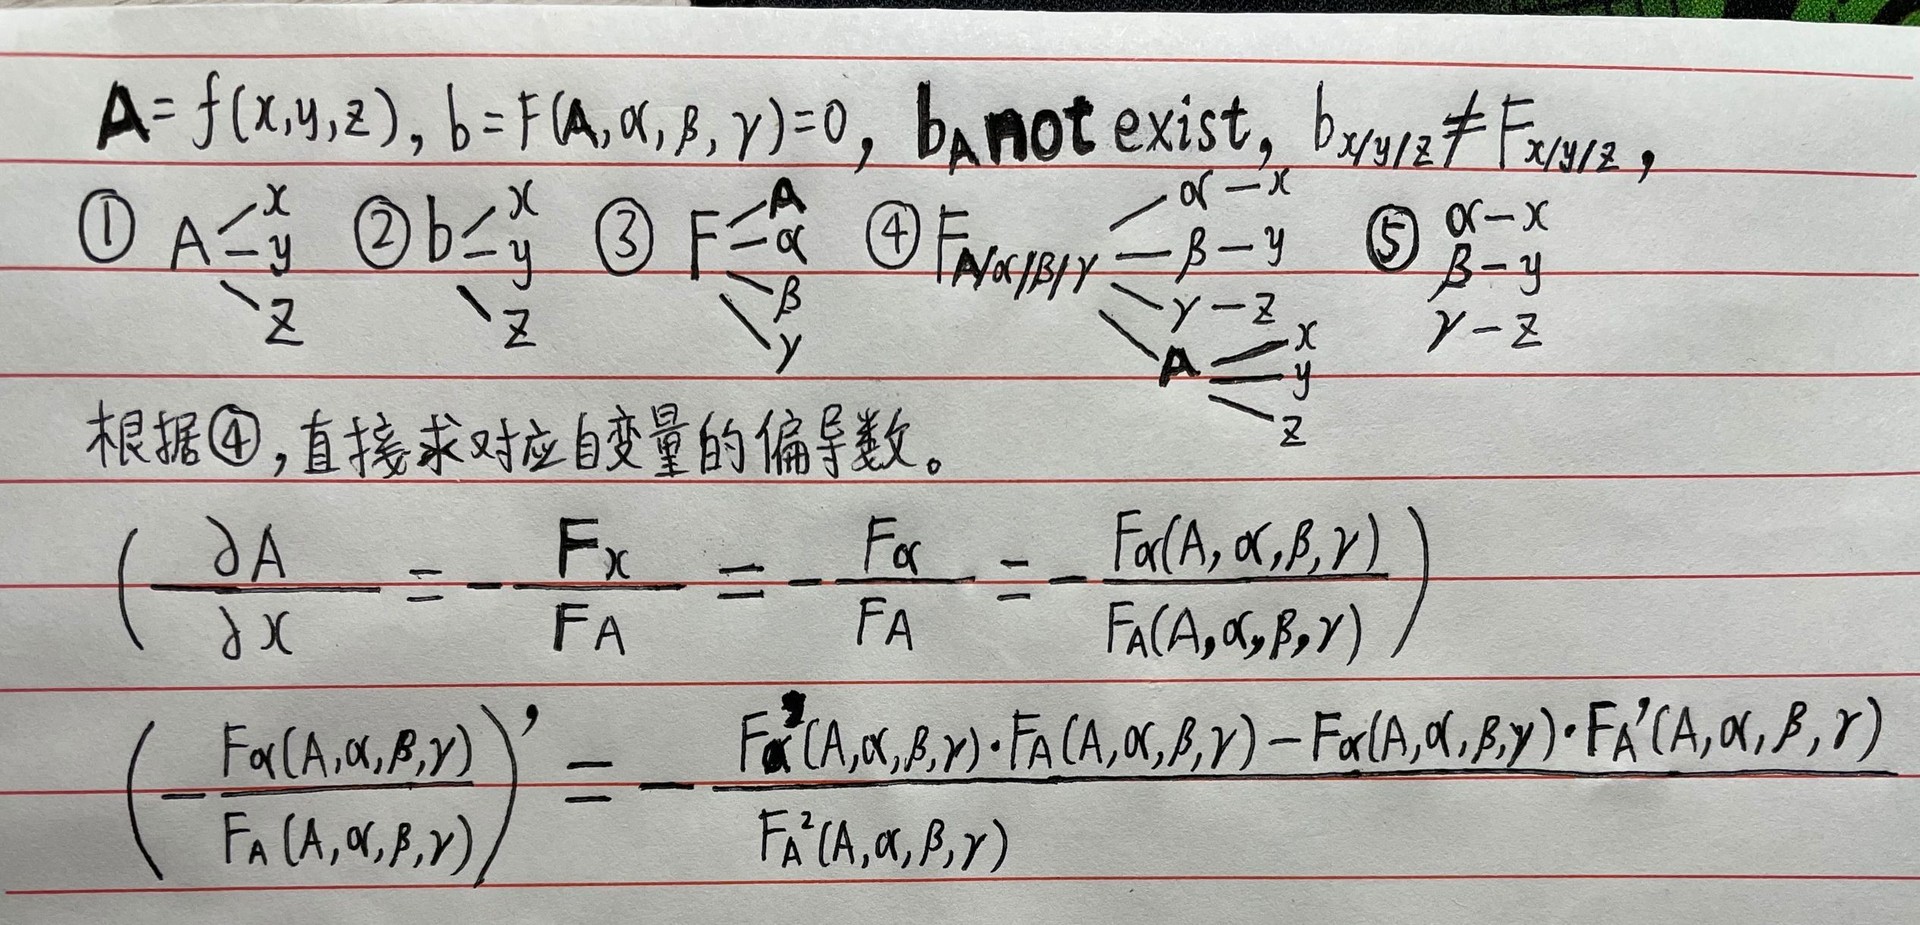 A = f(x,y,z), b = F(A, α, β, γ) = 0, b_A not exist, b_x/y/z ≠ F_x/y/z,
① A x y z ② b x y z ③ F A α β γ ④ F_A/α/β/γ α – x β – y γ – z A x y z ⑤ α – x β – y γ – z
根据④,直接求对应自变量的偏导数。
( ∂A/∂x = - F_x/F_A = - F_α/F_A = - F_α(A, α, β, γ)/F_A(A, α, β, γ) )
( - F_α(A, α, β, γ)/F_A(A, α, β, γ) )' = - F_α'(A, α, β, γ)·F_A(A, α, β, γ) – F_α(A, α, β, γ)·F_A'(A, α, β, γ) / F_A²(A, α, β, γ)